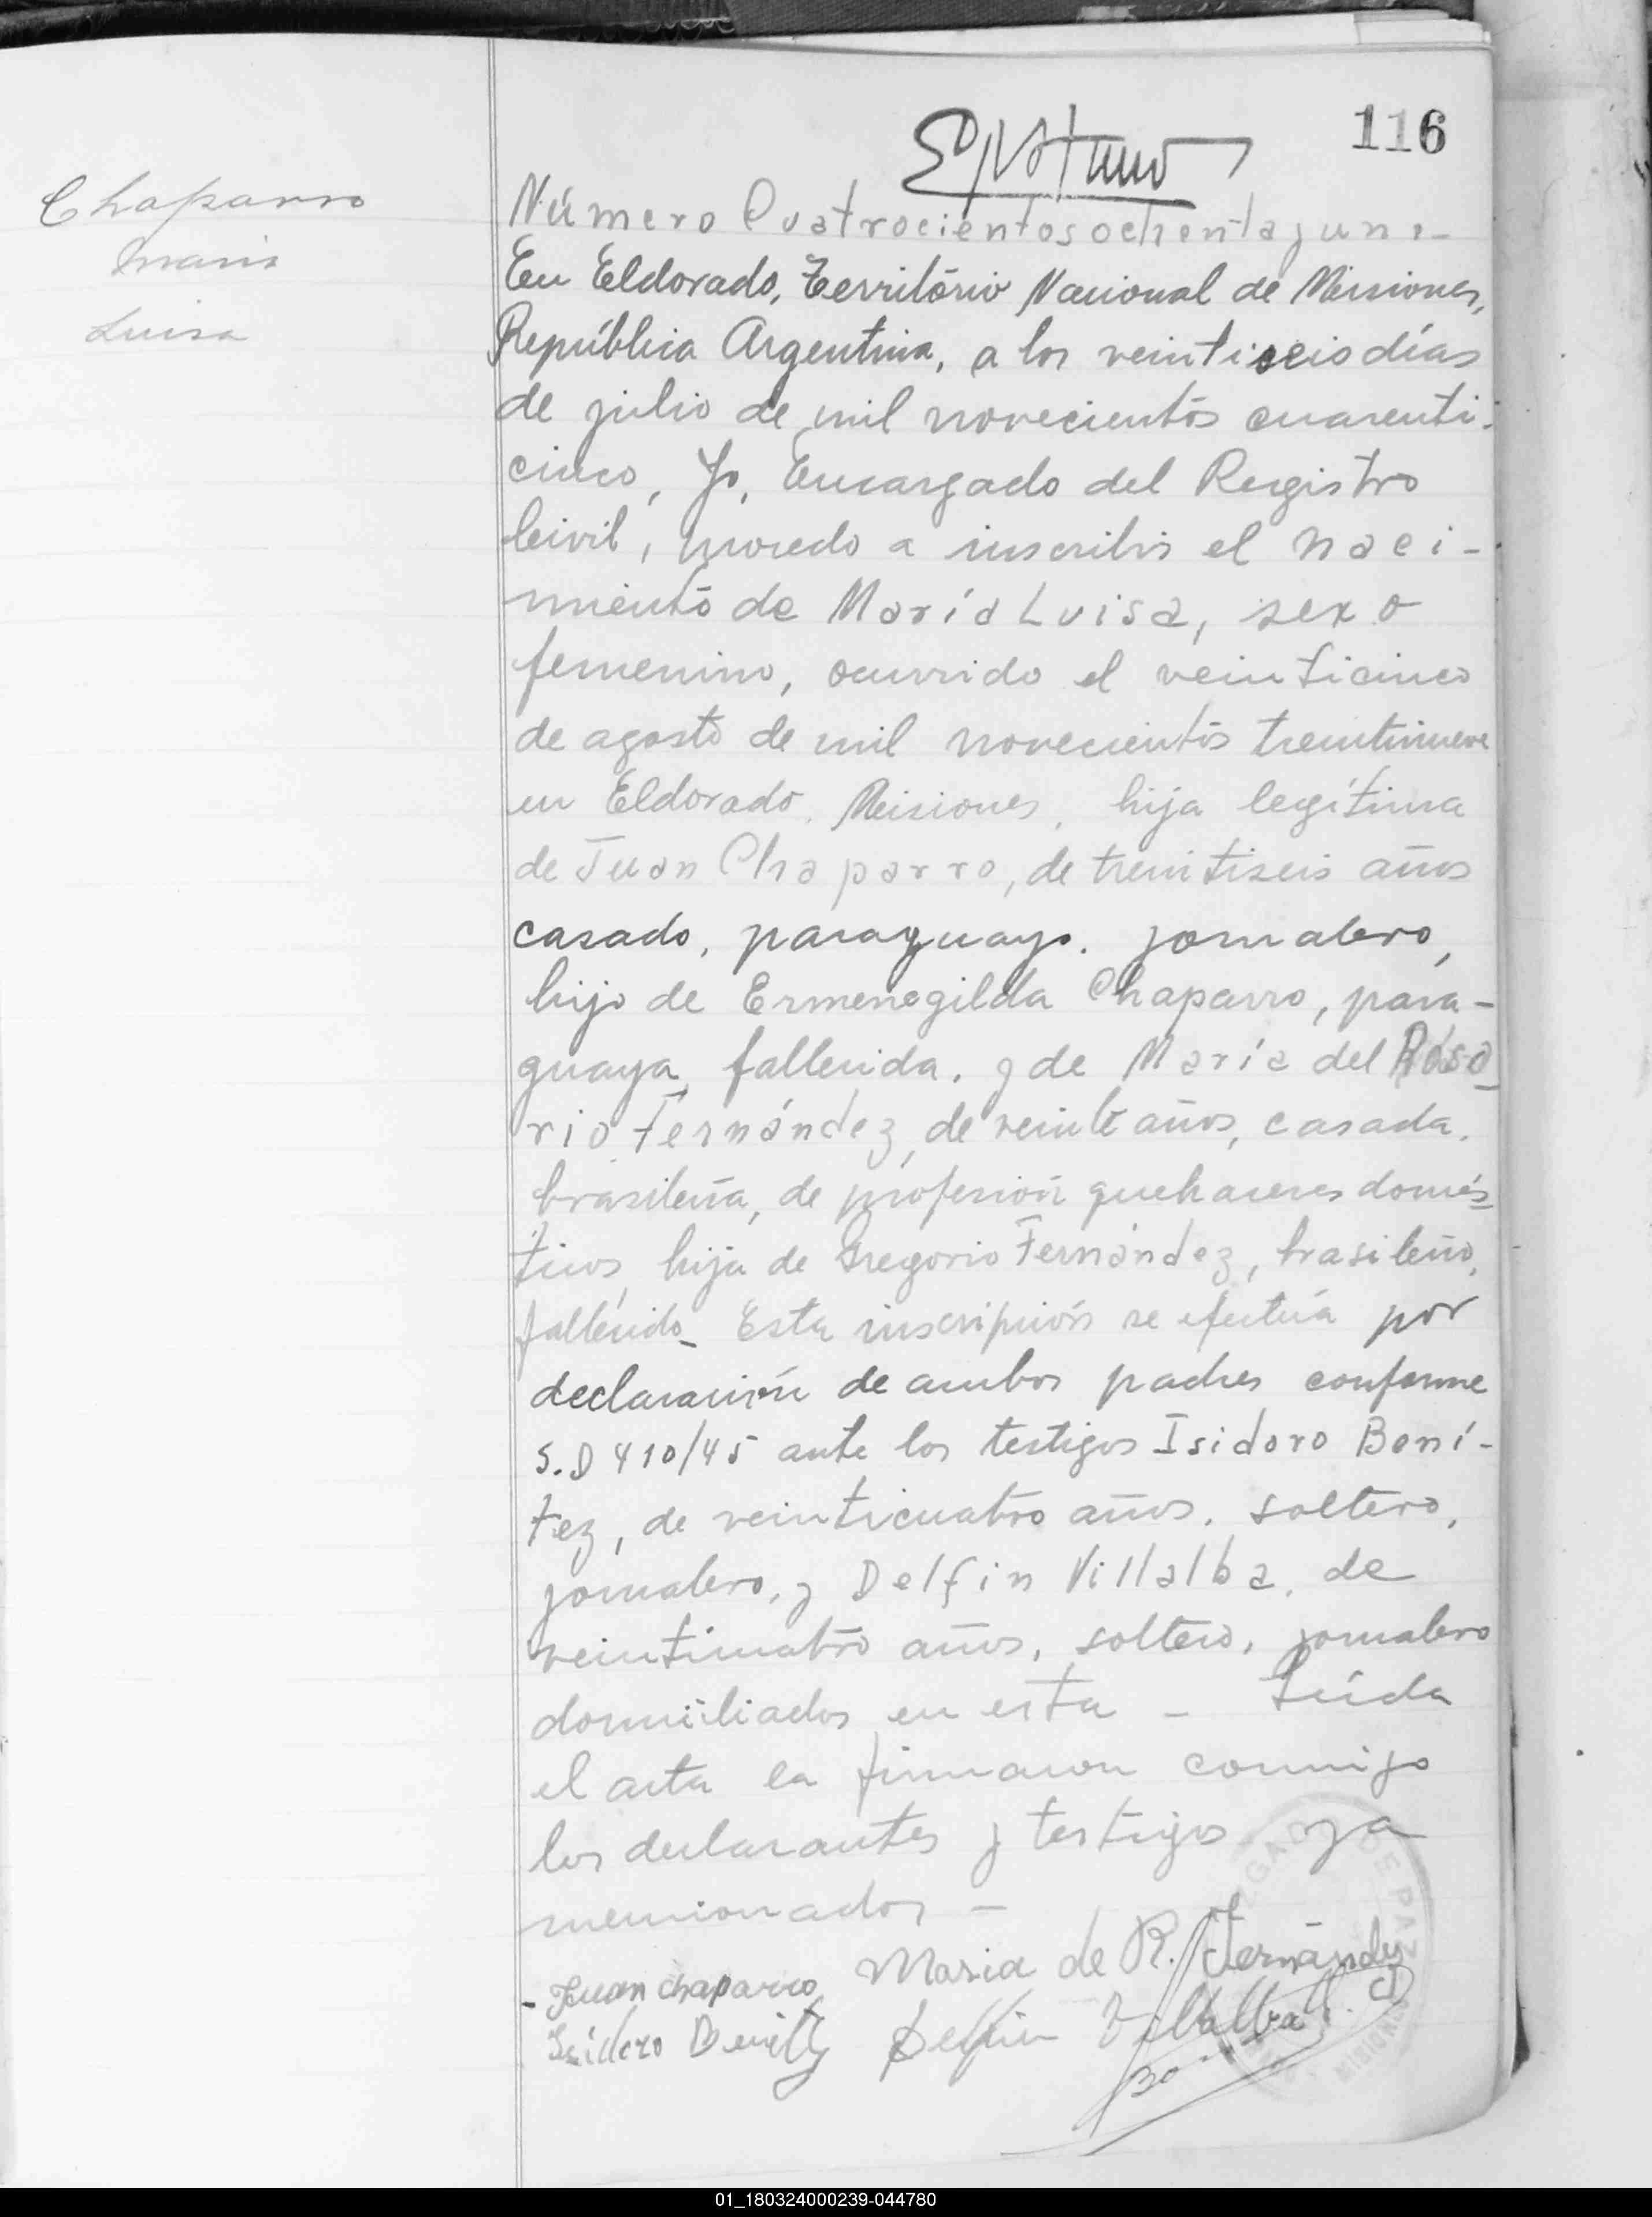 116
Chaparro
María
Luisa
Número Cuatrocientos ochenta y uno -
En Eldorado, Territorio Nacional de Misiones,
República Argentina, a los veintiseis días
de julio de mil novecientos cuarenti-
cinco, Yo, Encargado del Registro
Civil, procedo a inscribir el naci-
miento de María Luisa, sexo
femenino, ocurrido el veinticinco
de agosto de mil novecientos treintinueve
en Eldorado, Misiones, hija legítima
de Juan Chaparro, de treintiseis años
casado, paraguayo, jornalero,
hijo de Ermenegilda Chaparro, para-
guaya, fallecida, y de María del Rosa-
rio Fernández, de veinte años, casada,
brasileña, de profesión quehaceres domés-
ticos, hija de Gregorio Fernández, brasileño,
fallecido - Esta inscripción se efectúa por
declaración de ambos padres conforme
S.D 410/45 ante los testigos Isidoro Bení-
tez, de veinticuatro años, soltero,
jornalero, y Delfin Villalba, de
veinticuatro años, soltero, jornalero
domiciliados en esta - Leída
el acta la firmaron conmigo
los declarantes y testigos ya
mencionados -
- Juan chaparro Maria de R. Fernández
Isidoro Benitz Delfin Villalba
JUZGADO DE PAZ
MISIONES
01_180324000239-044780